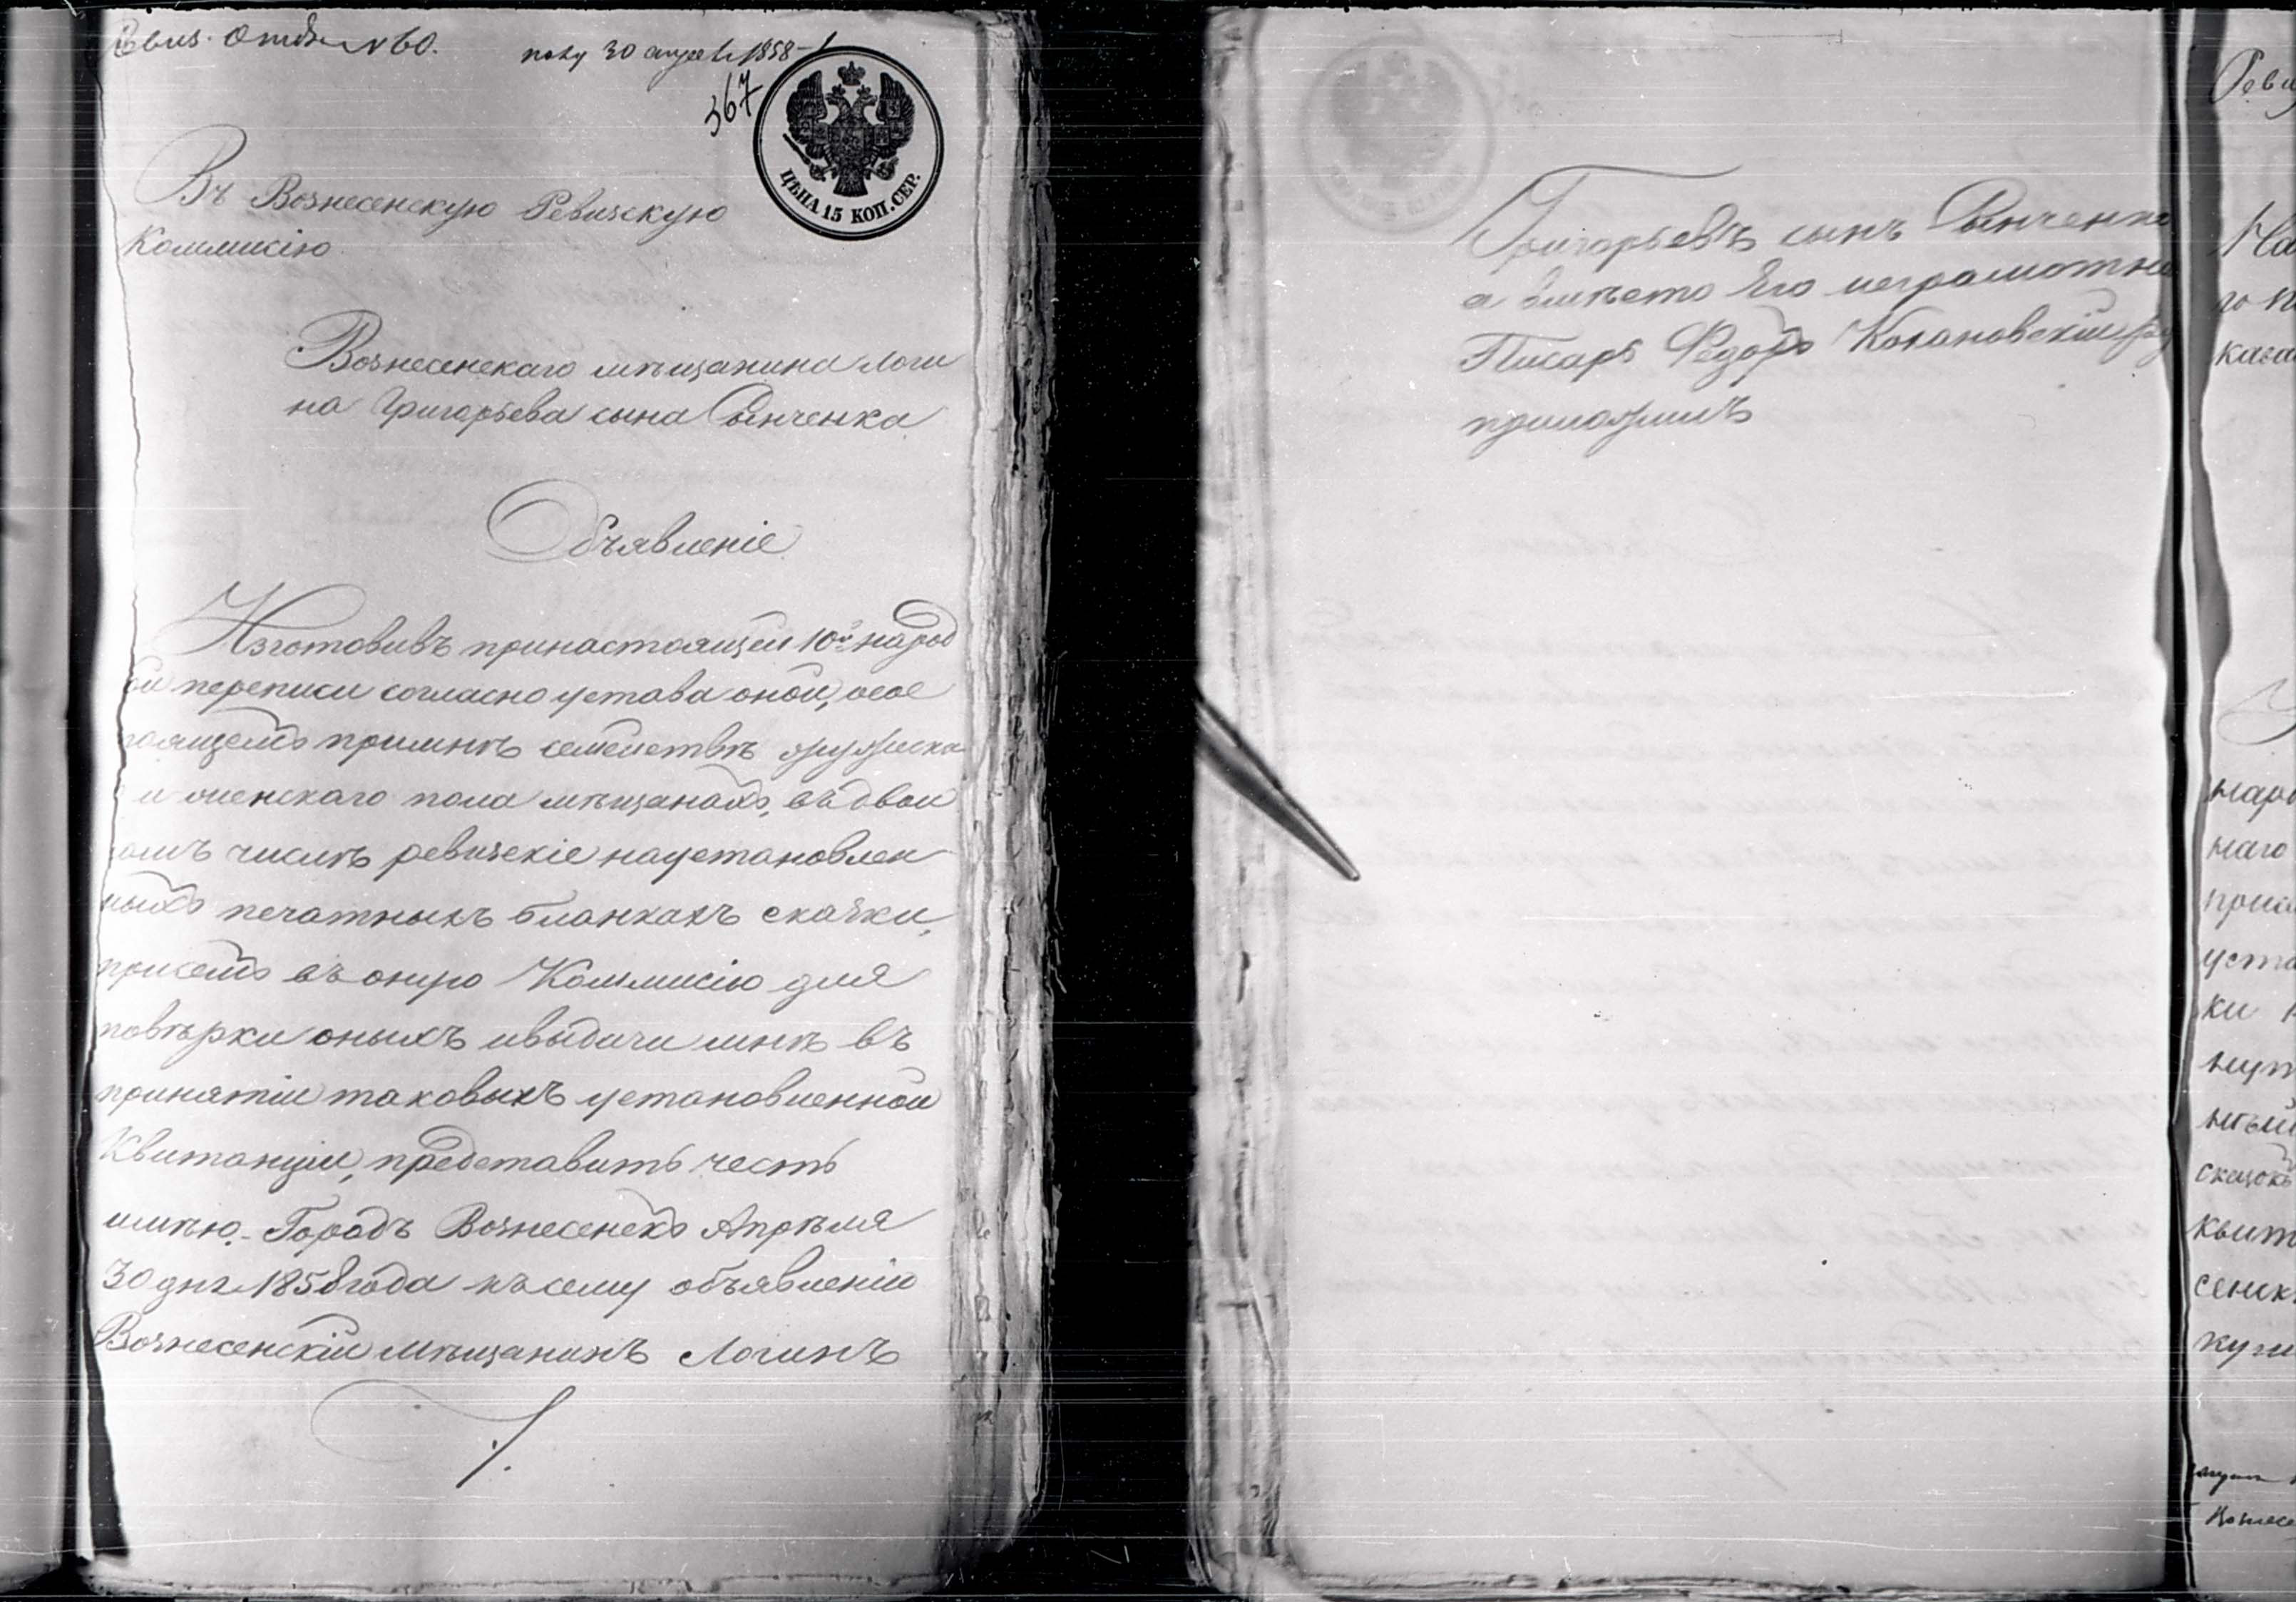 Ревиз. Отдѣл. N 60.
полу 30 апреля 1858
367
ЦѢНА 15 КОП. СЕР.
Въ Вознесенскую Ревизскую
Коммисію
Вознесенскаго мѣщанина Логи
на Григорьева сына Сынченка
Объявленіе
Изготовивъ принастоящей 10й народ
ой переписи согласно устава оной, о сос
тоящемъ примнѣ семействѣ мужеска
и женскаго пола мѣщанахъ, въ двой
номъ числѣ ревизскіе наустановлен
ныхъ печатныхъ бланкахъ сказки,
присемъ въ оную Коммисію для
повѣрки оныхъ ивыдачи мнѣ въ
принятіи таковыхъ установленной
Квитанціи, представить честь
имѣю. Городъ Вознесенскъ Апрѣля
30 дня 1858 года къ сему объявленію
Вознесенскій мѣщанинъ Логинъ
Григорьевъ сынъ Сынченко
а вмѣсто Его неграмотна
Писарь Федоръ Кохановскій ру
приложилъ
Реви
На
го
каза
наро
наго
прис
уста
ки
нут
ный
сказокъ
квит
сенск
купи
Вознесе